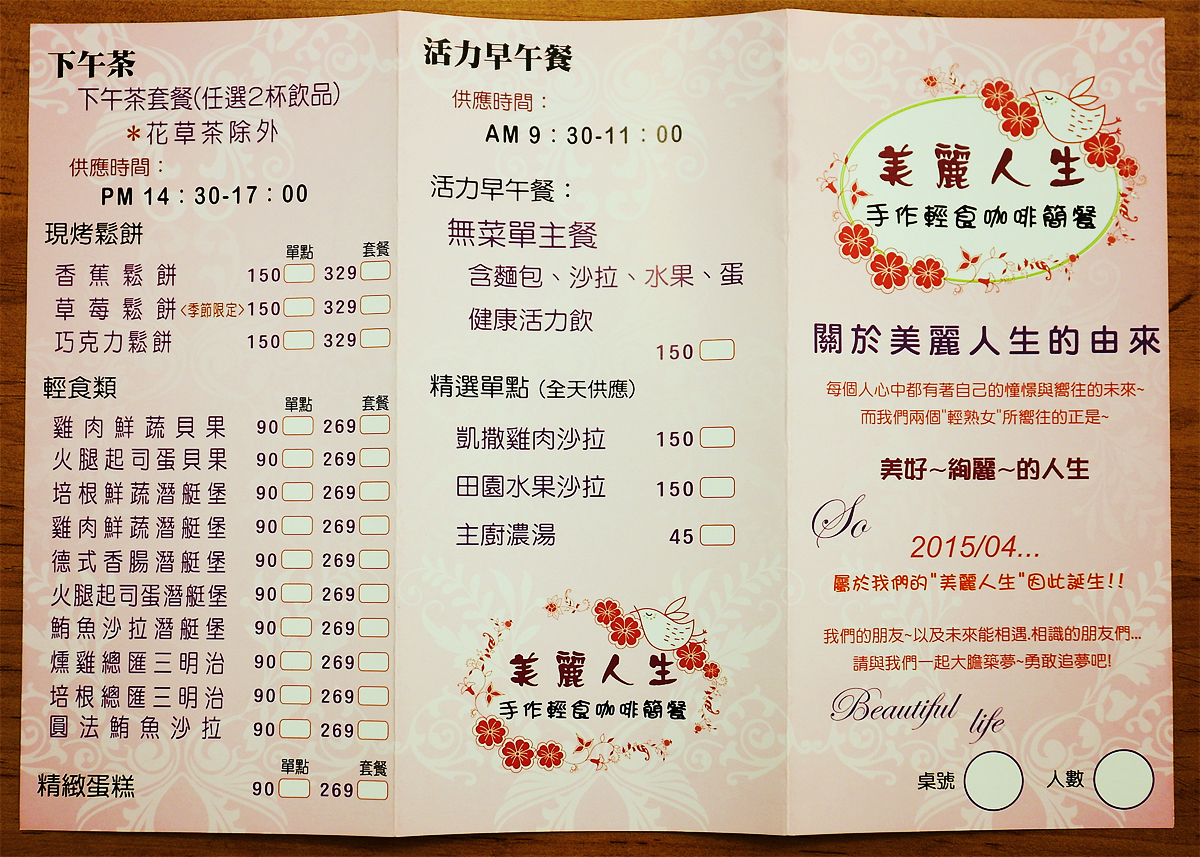 下午茶
下午茶套餐(任選2杯飲品)
*花草茶除外
供應時間：
PM 14：30-17：00
現烤鬆餅 單點 套餐
香蕉鬆餅 150 329
草莓鬆餅<季節限定> 150 329
巧克力鬆餅 150 329
輕食類 單點 套餐
雞肉鮮蔬貝果 90 269
火腿起司蛋貝果 90 269
培根鮮蔬潛艇堡 90 269
雞肉鮮蔬潛艇堡 90 269
德式香腸潛艇堡 90 269
火腿起司蛋潛艇堡 90 269
鮪魚沙拉潛艇堡 90 269
燻雞總匯三明治 90 269
培根總匯三明治 90 269
圓法鮪魚沙拉 90 269
單點 套餐
精緻蛋糕 90 269
活力早午餐
供應時間：
AM 9：30-11：00
活力早午餐：
無菜單主餐
含麵包、沙拉、水果、蛋
健康活力飲
150
精選單點（全天供應）
凱撒雞肉沙拉 150
田園水果沙拉 150
主廚濃湯 45
美麗人生
手作輕食咖啡簡餐
美麗人生
手作輕食咖啡簡餐
關於美麗人生的由來
每個人心中都有著自己的憧憬與嚮往的未來~
而我們兩個"輕熟女"所嚮往的正是~
美好~絢麗~的人生
So
2015/04...
屬於我們的"美麗人生"因此誕生!!
我們的朋友~以及未來能相遇.相識的朋友們...
請與我們一起大膽築夢~勇敢追夢吧!
Beautiful life
桌號 人數